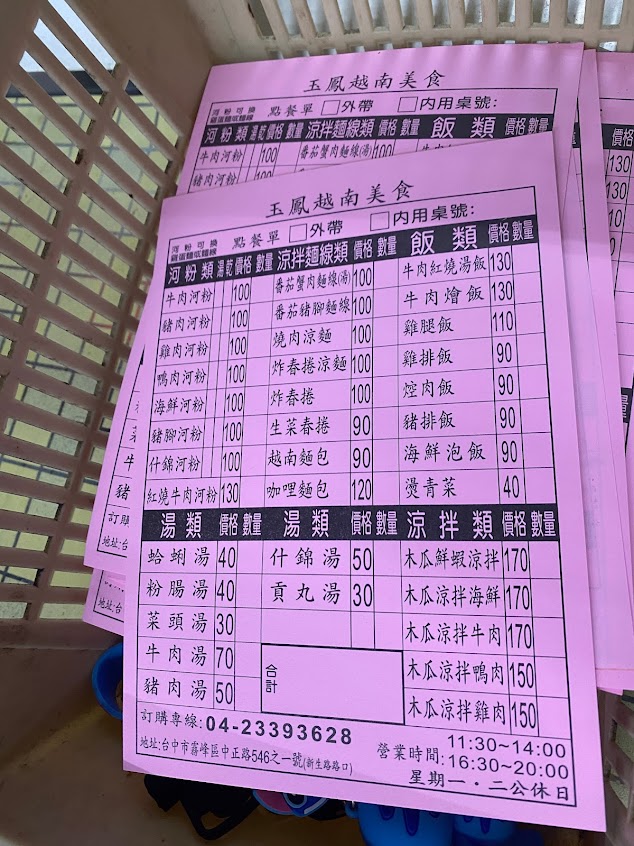 玉鳳越南美食
河粉可換
雞蛋麵或麵線 點餐單 外帶 內用桌號:
河粉類 湯 乾 價格 數量 涼拌麵線類 價格 數量 飯類
牛肉河粉 100 番茄蟹肉麵線(湯) 100
豬肉河粉 100
玉鳳越南美食
河粉可換
雞蛋麵或麵線 點餐單 外帶 內用桌號:
河粉類 湯 乾 價格 數量 涼拌麵線類 價格 數量 飯類 價格 數量
牛肉河粉 100 番茄蟹肉麵線(湯) 100 牛肉紅燒湯飯 130
豬肉河粉 100 番茄豬腳麵線 100 牛肉燴飯 130
雞肉河粉 100 燒肉涼麵 100 雞腿飯 110
鴨肉河粉 100 炸春捲涼麵 100 雞排飯 90
海鮮河粉 100 炸春捲 100 焢肉飯 90
豬腳河粉 100 生菜春捲 90 豬排飯 90
什錦河粉 100 越南麵包 90 海鮮泡飯 90
紅燒牛肉河粉 130 咖哩麵包 120 燙青菜 40
湯類 價格 數量 湯類 價格 數量 涼拌類 價格 數量
蛤蜊湯 40 什錦湯 50 木瓜鮮蝦涼拌 170
粉腸湯 40 貢丸湯 30 木瓜涼拌海鮮 170
菜頭湯 30 木瓜涼拌牛肉 170
牛肉湯 70 合計 木瓜涼拌鴨肉 150
豬肉湯 50 木瓜涼拌雞肉 150
訂購專線:04-23393628
地址:台中市霧峰區中正路546之一號(新生路路口)
營業時間:11:30~14:00
16:30~20:00
星期一・二公休日